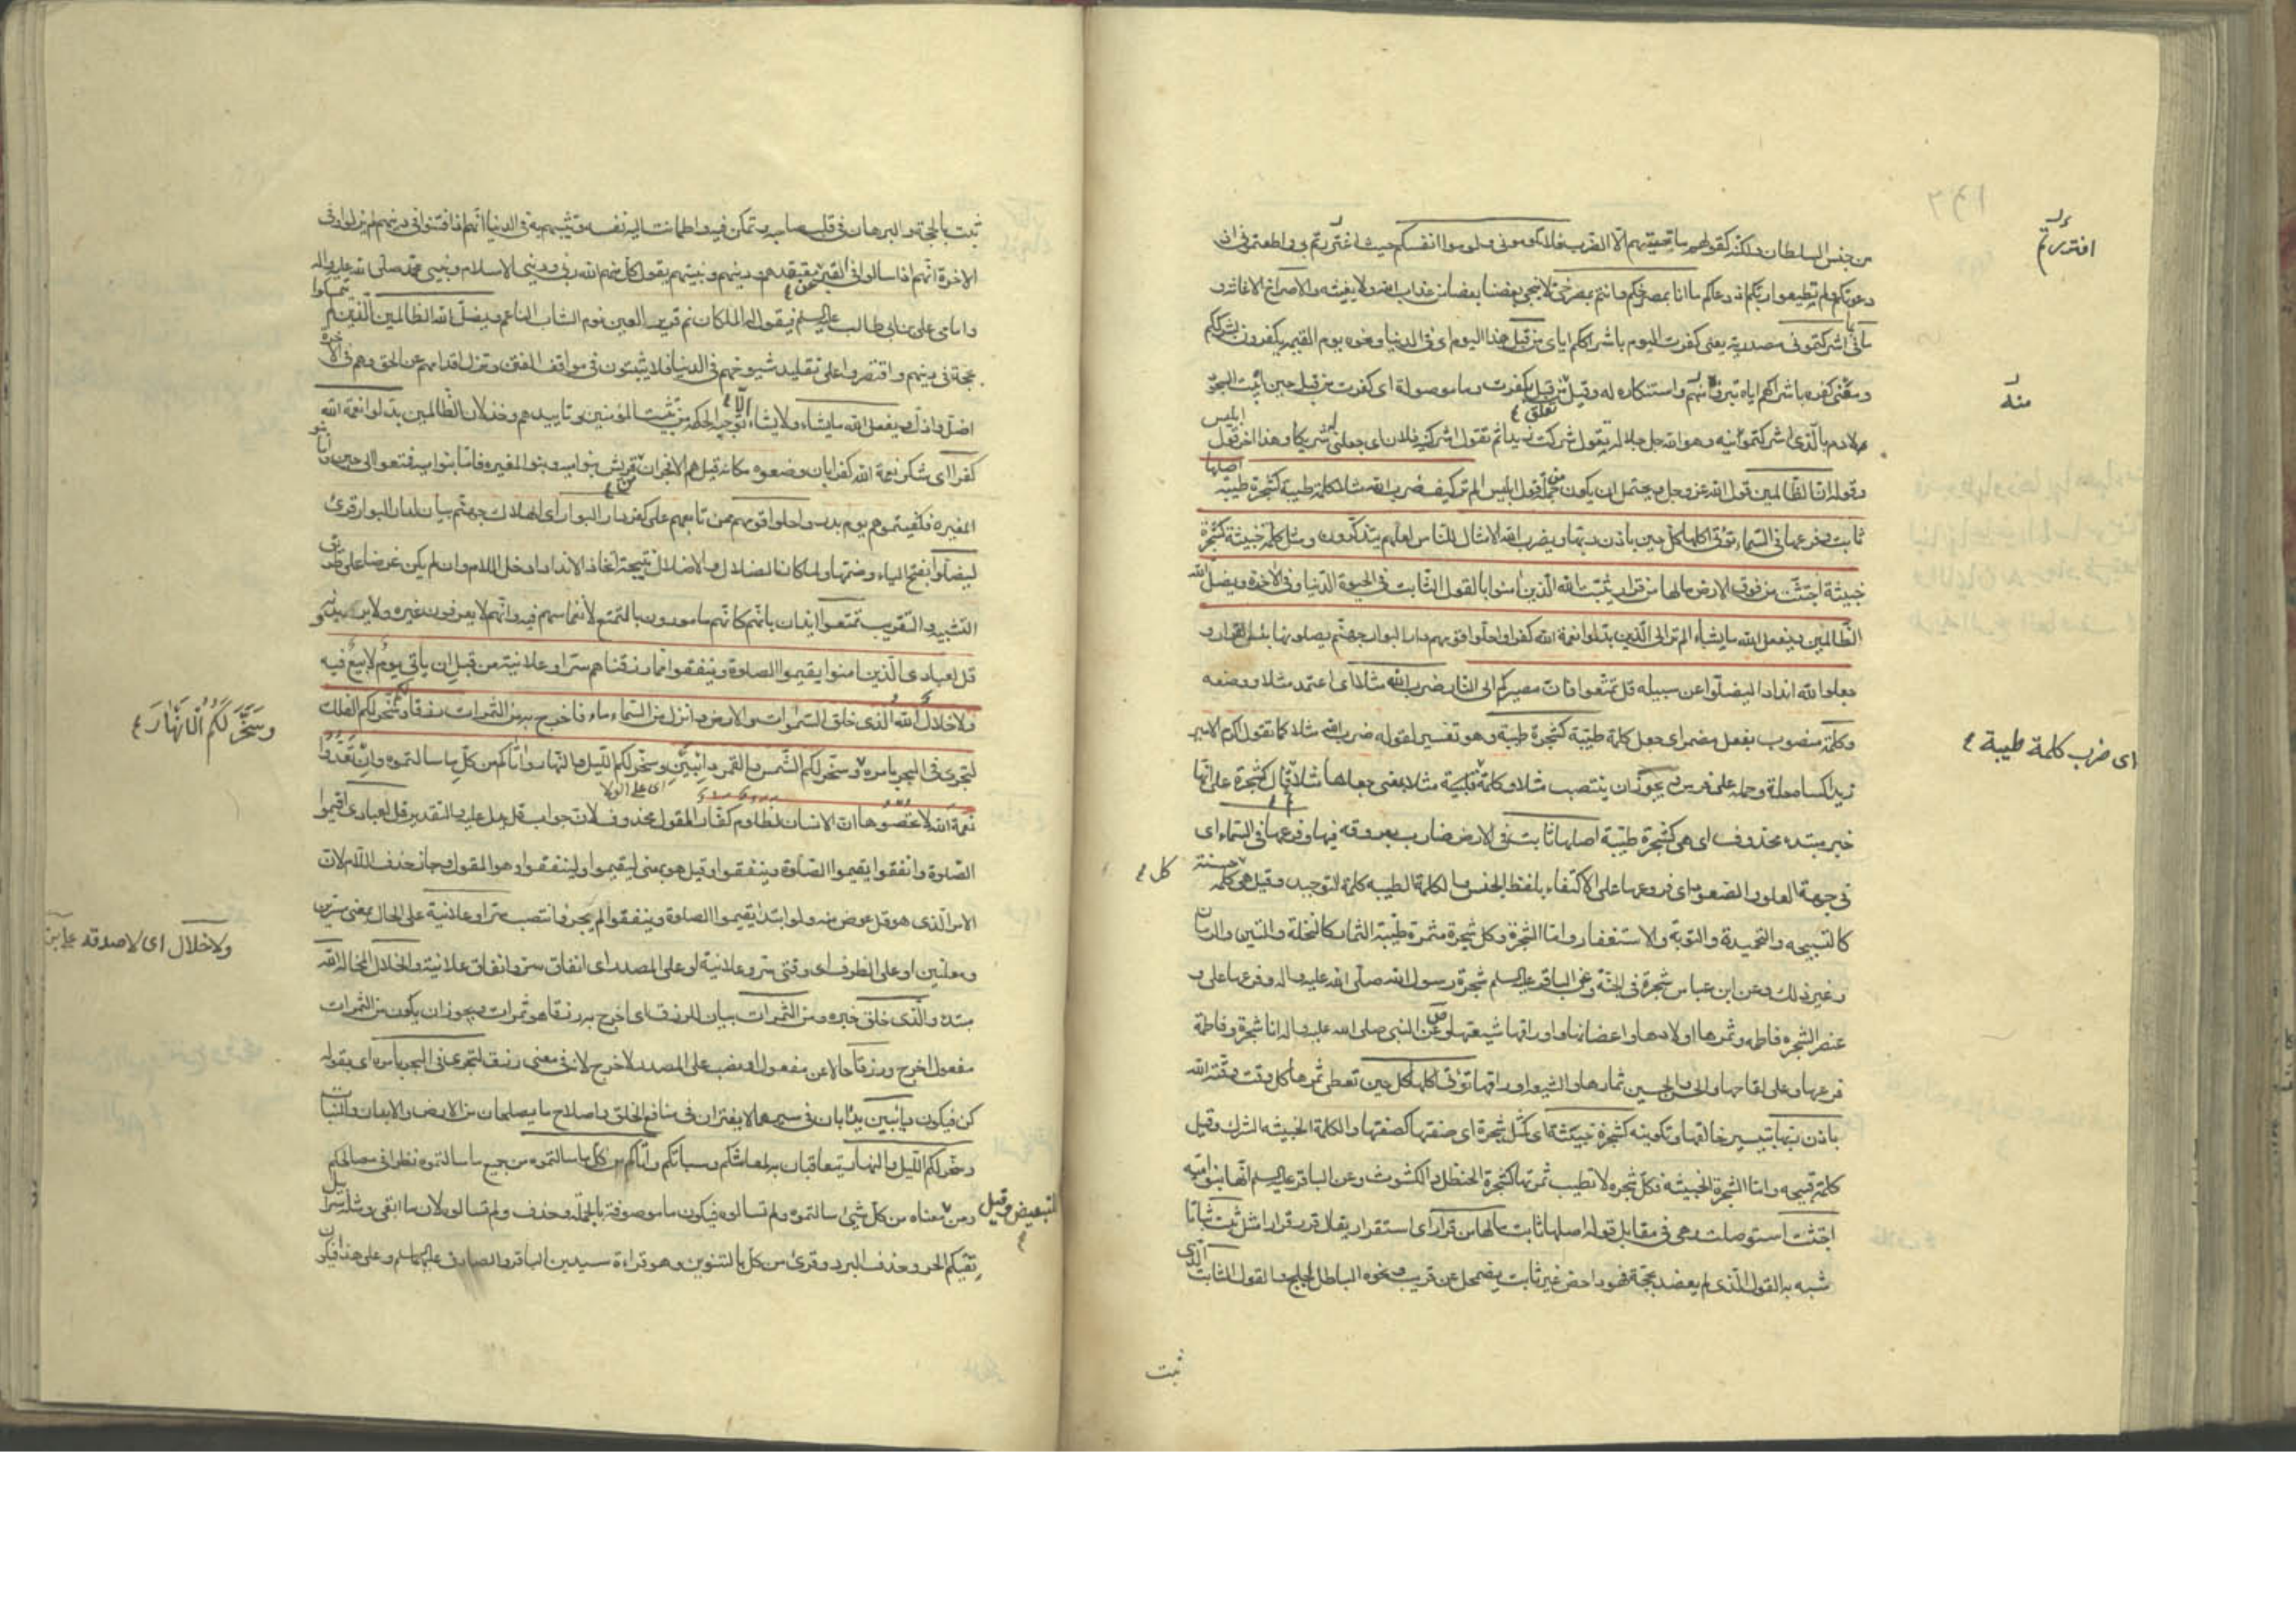 من جنس السلطان ولكنه كقولهم ما تحيتهم الا الضرب فلا تلوموني ولوموا انفسكم حيث اغتررتم بي واطعتموني اذ
دعوتكم ولم تطيعوا ربكم اذ دعاكم ما انا بمصرخكم وما انتم بمصرخي لا ينجي بعضنا بعضا من عذاب الله ولا يغيثه والاصراخ الاغاثة و
ما في اشركتموني مصدرية يعني كفرت اليوم باشراككم اياي من قبل هذا اليوم اي في الدنيا ونحوه يوم القيمة يكفرون بشرككم
ومعنى كفره باشراكهم اياه تبروه منهم واستنكاره له وقيل من قبل تعلق بكفرت وما موصولة اي كفرت من قبل حين ابيت السجود
لادم بالذي اشركتمونيه وهو الله جل جلاله تقول شركت زيدا ثم تقول اشركنيه فلان اي جعلني له شريكا وهذا اخر قول ابليس
وقوله ان الظالمين قول الله عز وجل ويحتمل ان يكون من جملة قول ابليس الم تر كيف ضرب الله مثلا كلمة طيبة كشجرة طيبة اصلها
ثابت وفرعها في السماء تؤتي اكلها كل حين باذن ربها ويضرب الله الامثال للناس لعلهم يتذكرون ومثل كلمة خبيثة كشجرة
خبيثة اجتثت من فوق الارض ما لها من قرار يثبت الله الذين امنوا بالقول الثابت في الحيوة الدنيا وفي الاخرة ويضل الله
الظالمين ويفعل الله ما يشاء الم تر الى الذين بدلوا نعمة الله كفرا واحلوا قومهم دار البوار جهنم يصلونها وبئس القرار و
جعلوا لله اندادا ليضلوا عن سبيله قل تمتعوا فان مصيركم الى النار ضرب الله مثلا اي اعتمد مثلا ووضعه
وكلمة منصوب بفعل مضمر اي جعل كلمة طيبة كشجرة طيبة وهو تفسير لقوله ضرب الله مثلا كما تقول اكرم الامير
زيدا كساه حلة وحمله على فرس ويجوز ان ينتصب مثلا وكلمة بضرب اي ضرب كلمة طيبة مثلا بمعنى جعلها مثلا ثم قال كشجرة على انها
خبر مبتدء محذوف اي هي كشجرة طيبة اصلها ثابت في الارض ضارب بعروقه فيها وفرعها في السماء اي
في جهة العلو والصعود اي فروعها على الاكتفاء بلفظ الجنس والكلمة الطيبة كلمة التوحيد وقيل هي كل كلمة حسنة
كالتسبيحة والتحميدة والتوبة والاستغفار واما الشجرة فكل شجرة مثمرة طيبة الثمار كالنخلة والتين والرمان
وغير ذلك وعن ابن عباس شجرة في الجنة وعن الباقر عليه السلم شجرة رسول الله صلى الله عليه واله وفرعها علي و
عنصر الشجرة فاطمة وثمرها اولادها واغصانها واوراقها شيعتها وعن النبي صلى الله عليه واله انا شجرة وفاطمة
فرعها وعلي لقاحها والحسن والحسين ثمارها والشيعة اوراقها تؤتي اكلها كل حين تعطي ثمرها كل وقت وقته الله
باذن ربها بتيسير خالقها وتكوينه كشجرة خبيثة اي كمثل شجرة اي صفتها كصفتها والكلمة الخبيثة الشرك وقيل
كلمة قبيحة واما الشجرة الخبيثة فكل شجرة لا تطيب ثمرتها كشجرة الحنظل والكشوث وعن الباقر عليه السلم انها بنو امية
اجتثت استوصلت وهي في مقابل قوله اصلها ثابت ما لها من قرار اي استقرار يقال قر قرارا مثل ثبت ثباتا
شبه به القول الذي لم يعضد بحجة فهو داحض غير ثابت يضمحل عن قريب ونحوه الباطل لجلج والقول الثابت الذي
ثبت
اغتررتم
منه
اي ضرب كلمة طيبة
كل
ثبت بالحجة والبرهان في قلب صاحبه وتمكن فيه واطمانت اليه نفسه وتثبيتهم به في الدنيا انهم اذا فتنوا في دينهم لم يزلوا وفي
الاخرة انهم اذا سالوا في القبر عن معتقدهم ودينهم ونبيهم يقول كل منهم الله ربي وديني الاسلام ونبيي محمد صلى الله عليه واله
وامامي علي بن ابي طالب عليه السلم فيقول له الملكان نم قرير العين نوم الشاب الناعم ويضل الله الظالمين الذين لم يتمسكوا
بحجة في دينهم واقتصروا على تقليد شيوخهم في الدنيا فلا يثبتون في مواقف الفتن وتزل اقدامهم عن الحق وهم في الاخرة
اضل واذل ويفعل الله ما يشاء ولا يشاء الا ما توجبه الحكمة من تثبيت المؤمنين وتاييدهم وخذلان الظالمين بدلوا نعمة الله
كفرا اي شكر نعمة الله كفرا بان وضعوه مكانه قيل هم الافجران من قريش بنو امية وبنو المغيرة فاما بنو امية فمتعوا الى حين واما بنو
المغيرة فكفيتموهم يوم بدر واحلوا قومهم ممن تابعهم على كفرهم دار البوار اي الهلاك جهنم بيان لدار البوار قرئ
ليضلوا بفتح الياء وضمها ولما كان الضلال والاضلال نتيجة اتخاذ الانداد ادخل اللام وان لم يكن غرضا على طريق
التشبيه والتقريب تمتعوا ايذان بانهم كانهم مامورون بالتمتع لانغماسهم فيه وانهم لا يعرفون غيره ولا يريدونه
قل لعبادي الذين امنوا يقيموا الصلوة وينفقوا مما رزقناهم سرا وعلانية من قبل ان ياتي يوم لا بيع فيه
ولا خلال الله الذي خلق السموات والارض وانزل من السماء ماء فاخرج به من الثمرات رزقا لكم وسخر لكم الفلك
لتجري في البحر بامره وسخر لكم الشمس والقمر دائبين وسخر لكم الليل والنهار واتاكم من كل ما سالتموه وان تعدوا
نعمة الله لا تحصوها ان الانسان لظلوم كفار المقول محذوف لان جواب قل يدل عليه والتقدير قل لعبادي اقيموا
الصلوة وانفقوا يقيموا الصلوة وينفقوا وقيل هو بمعنى ليقيموا ولينفقوا وهو المقول وجاز حذف اللام لان
الامر الذي هو قل عوض منه ولو ابتدئ يقيموا الصلوة وينفقوا لم يجز وانتصب سرا وعلانية على الحال بمعنى مسرين
ومعلنين او على الظرف اي وقتي سر وعلانية او على المصدر اي انفاق سر وانفاق علانية والخلال المخالة الله
مبتدء والذي خلق خبره ومن الثمرات بيان للرزق اي اخرج به رزقا هو ثمرات ويجوز ان يكون من الثمرات
مفعول اخرج ورزقا حالا عن مفعول او نصب على المصدر لاخرج لانه في معنى رزق لتجري في البحر بامره اي بقوله
كن فيكون دائبين يدأبان في سيرهما لا يفتران في منافع الخلق واصلاح ما يصلحان من الارض والابدان والنبات
وسخر لكم الليل والنهار يتعاقبان لمعاشكم وسباتكم واتاكم من كل ما سالتموه من جميع ما سالتموه نظرا في مصالحكم
ومن للتبعيض وقيل معناه من كل شيء سالتموه ولم تسالوه فيكون ما موصوفة بالجملة وحذف ولم تسالوه لان ما ابقي ومثله سرابيل
تقيكم الحر وحذف البرد وقرئ من كل بالتنوين وهو قراءة سيدين الباقر والصادق عليهما السلم وعلى هذا فيكون
وسخر لكم الانهار
ولا خلال اي لا صدقة